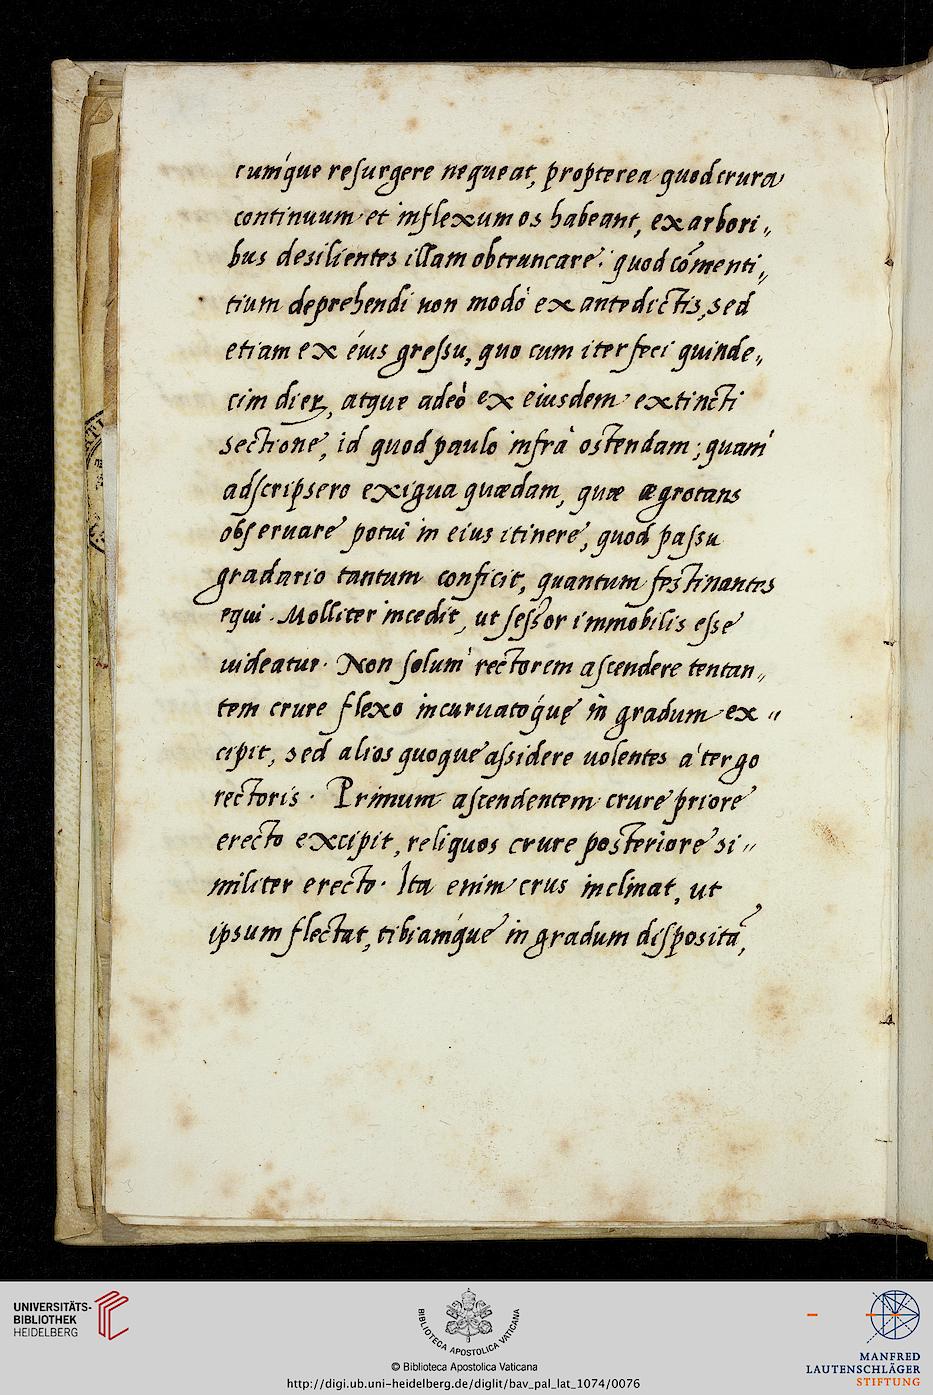 cumque resurgere nequeat, propterea quod crura
continuum et inflexum os habeant, ex arbori,,
bus desilientes illam obtruncare: quod cōmenti,,
tium deprehendi non modò ex antedictis, sed
etiam ex eius gressu, quo cum iter feci quinde,,
cim dieꝝ, atque adeò ex eiusdem extincti
sectione, id quod paulo infrà ostendam; quam
adscripsero exigua quædam, quæ ægrotans
obseruare potui in eius itinere, quod passu
gradario tantum conficit, quantum festinantes
equi. Molliter incedit, ut sessor immobilis esse
uideatur. Non solum rectorem ascendere tentan,,
tem crure flexo incuruatoq́ue in gradum ex,,
cipit, sed alios quoque assidere uolentes à tergo
rectoris. Primum ascendentem crure priore
erecto excipit, reliquos crure posteriore si,,
militer erecto. Ita enim crus inclinat, ut
ipsum flectat, tibiamq́ue in gradum dispositā,
UNIVERSITÄTS-
BIBLIOTHEK
HEIDELBERG
BIBLIOTECA APOSTOLICA VATICANA
© Biblioteca Apostolica Vaticana
http://digi.ub.uni-heidelberg.de/diglit/bav_pal_lat_1074/0076
MANFRED
LAUTENSCHLÄGER
STIFTUNG